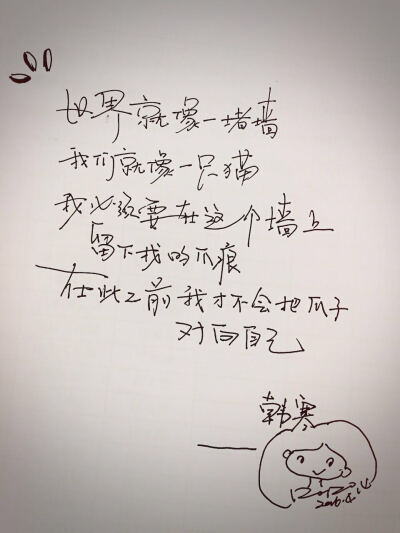 世界就像一堵墙
我们就像一只猫
我必须要在这个墙上
留下我的爪痕
在此之前我才不会把爪子
对向自己
——韩寒
2016.4.14